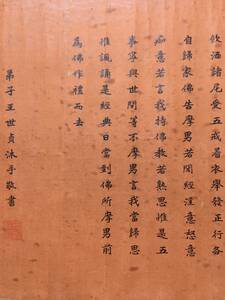 飲酒諸尼愛五戒著衣舉發正行各
自歸家佛告摩男若聞經淫意怒意
痴意若言我持佛教若熟思惟是五
事寧與世間等不摩男言我當歸思
惟諷誦是經典日當到佛所摩男前
為佛作禮而去
弟子王世貞沐手敬書